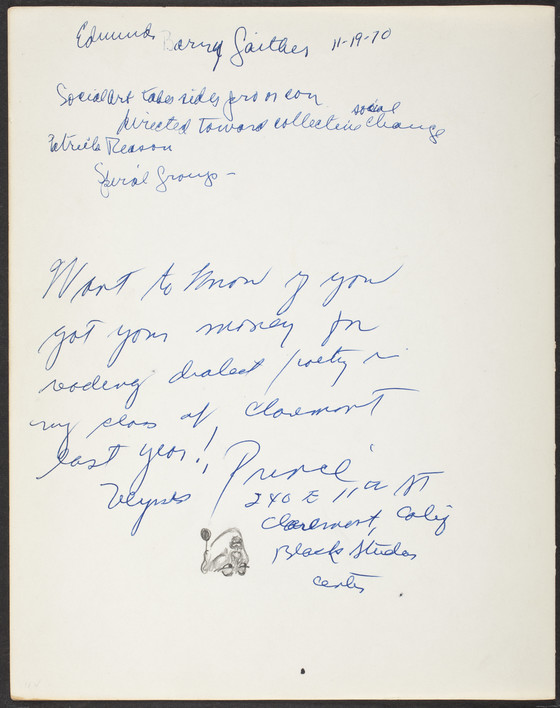 Edmund Barry Gaither 11-19-70
Social Art takes sides pro or con
directed toward collective social change
Reason
Special Groups -
Want to know if you
got your money for
reading dialect poetry in
my class at Claremont
last year!
Ulysses Prince
240 E 11th St
Claremont, Calif
Black Studies
Center